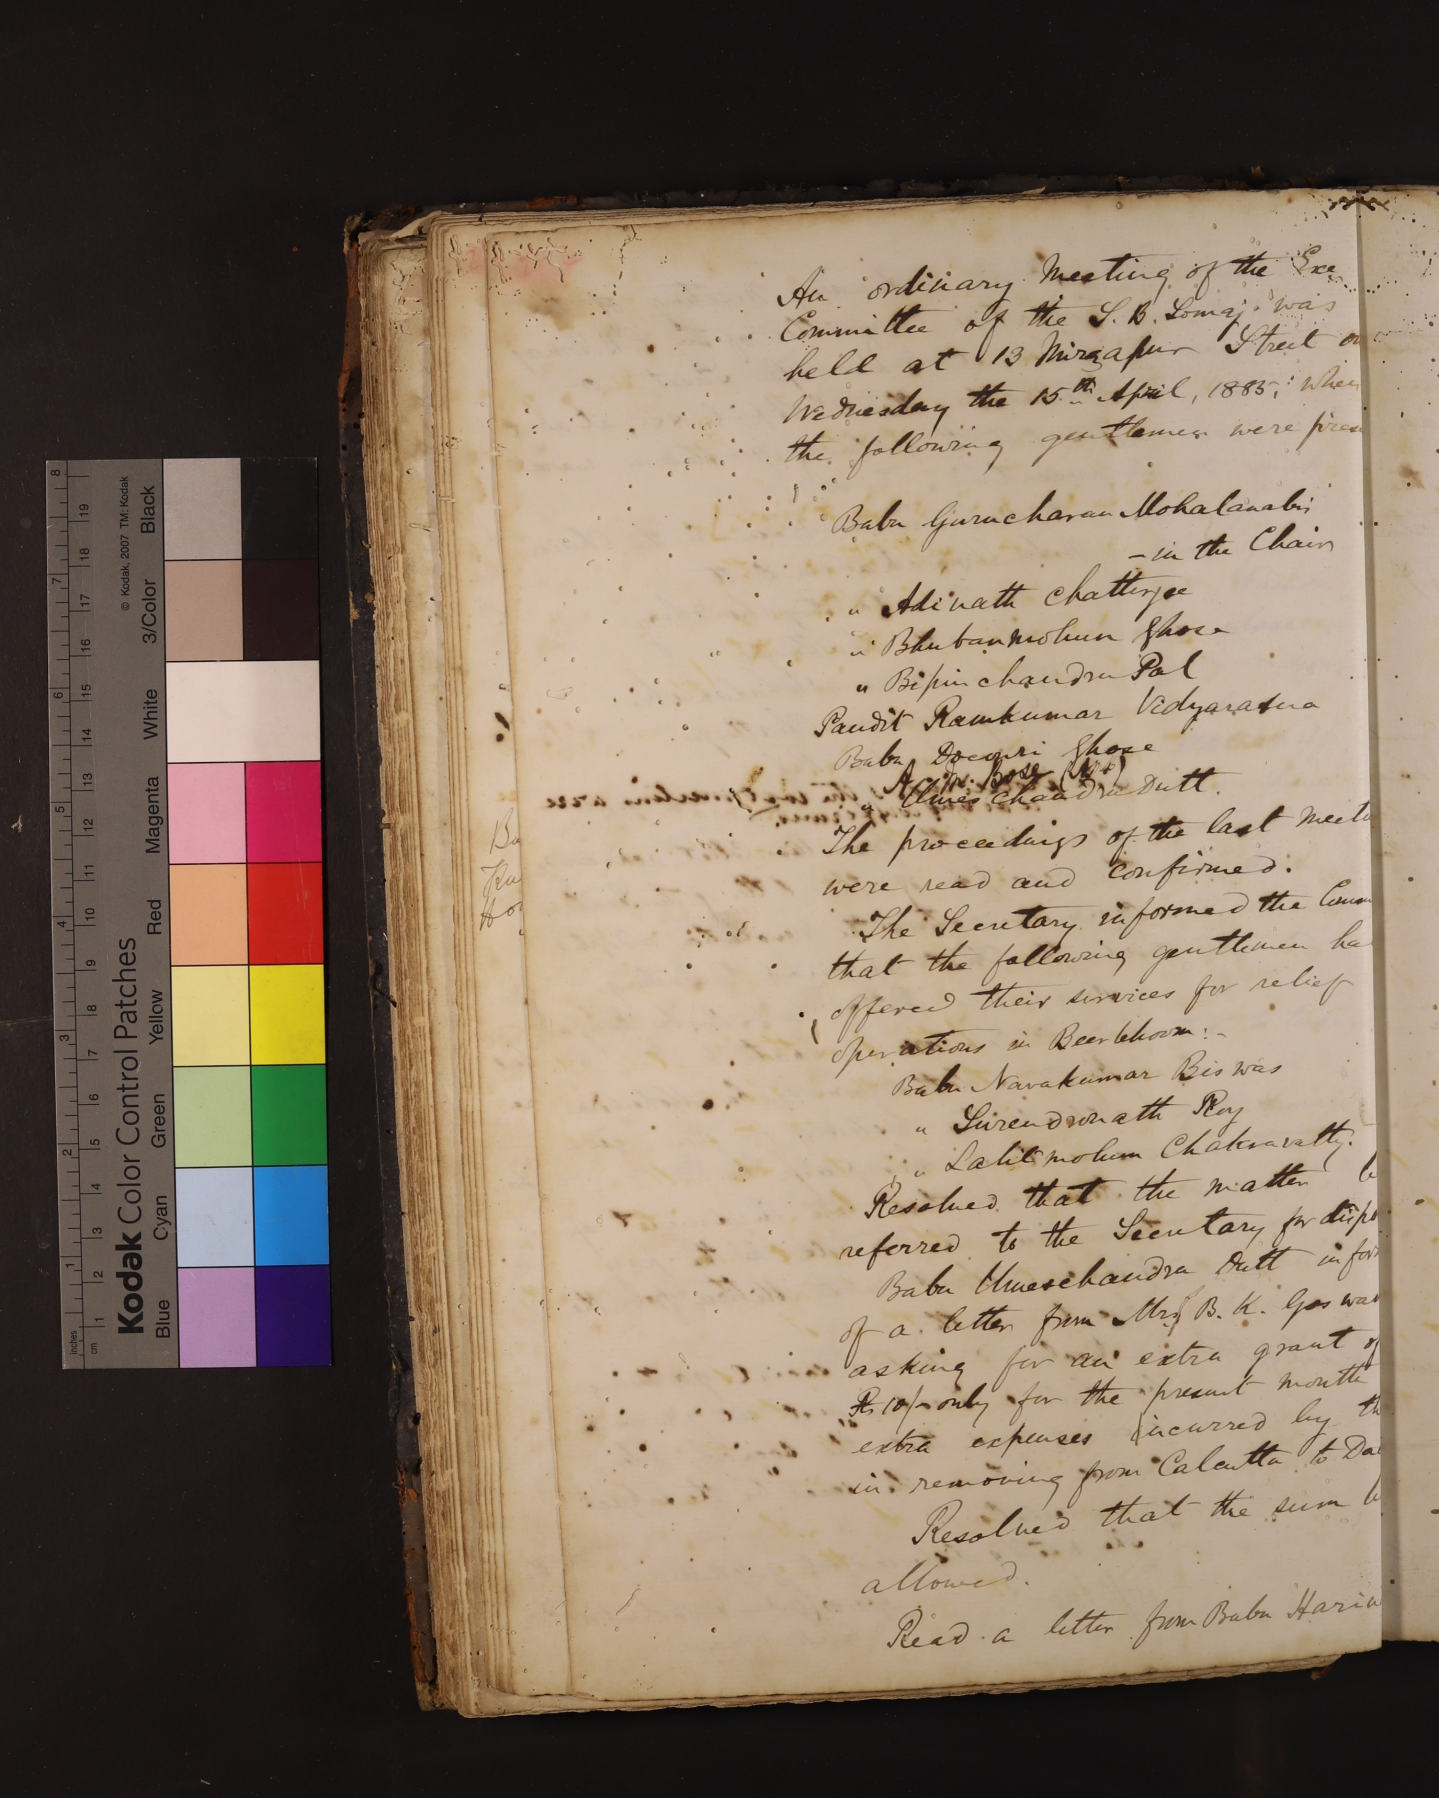 An ordinary Meeting of the Exe
Committee of the S. B. Somaj was
held at 13 Mirzapur Street on
Wednesday the 15th April, 1885, when
the following gentlemen were presen
Babu Gurucharan Mohalanabis
- in the Chair
" Adinath Chatterjee
" Bhubanmohun Ghose
" Bipinchandra Pal
Pandit Ramkumar Vidyaratna
Babu Docouri Ghose
A. M. Bose (Mr)
" Umeschandra Dutt.
The proceedings of the last meeti
were read and confirmed.
The Secretary informed the Comm
that the following gentlemen ha
offered their services for relief
operations in Beerbhoom:-
Babu Navakumar Biswas
" Surendronath Roy
" Lalitmohun Chakravatty.
Resolved that the matter b
referred to the Secretary for dispo
Babu Umeschandra Dutt infor
of a letter from Mrs B. K. Goswa
asking for an extra grant of
Rs 10/- only for the present month
extra expenses incurred by th
in removing from Calcutta to Dac
Resolved that the sum b
allowed.
Read a letter from Babu Harin
Ba
Ku
Ho
Kodak Color Control Patches
© Kodak, 2007 TM: Kodak
Blue Cyan Green Yellow Red Magenta White 3/Color Black
inches 1 2 3 4 5 6 7 8
cm 1 2 3 4 5 6 7 8 9 10 11 12 13 14 15 16 17 18 19